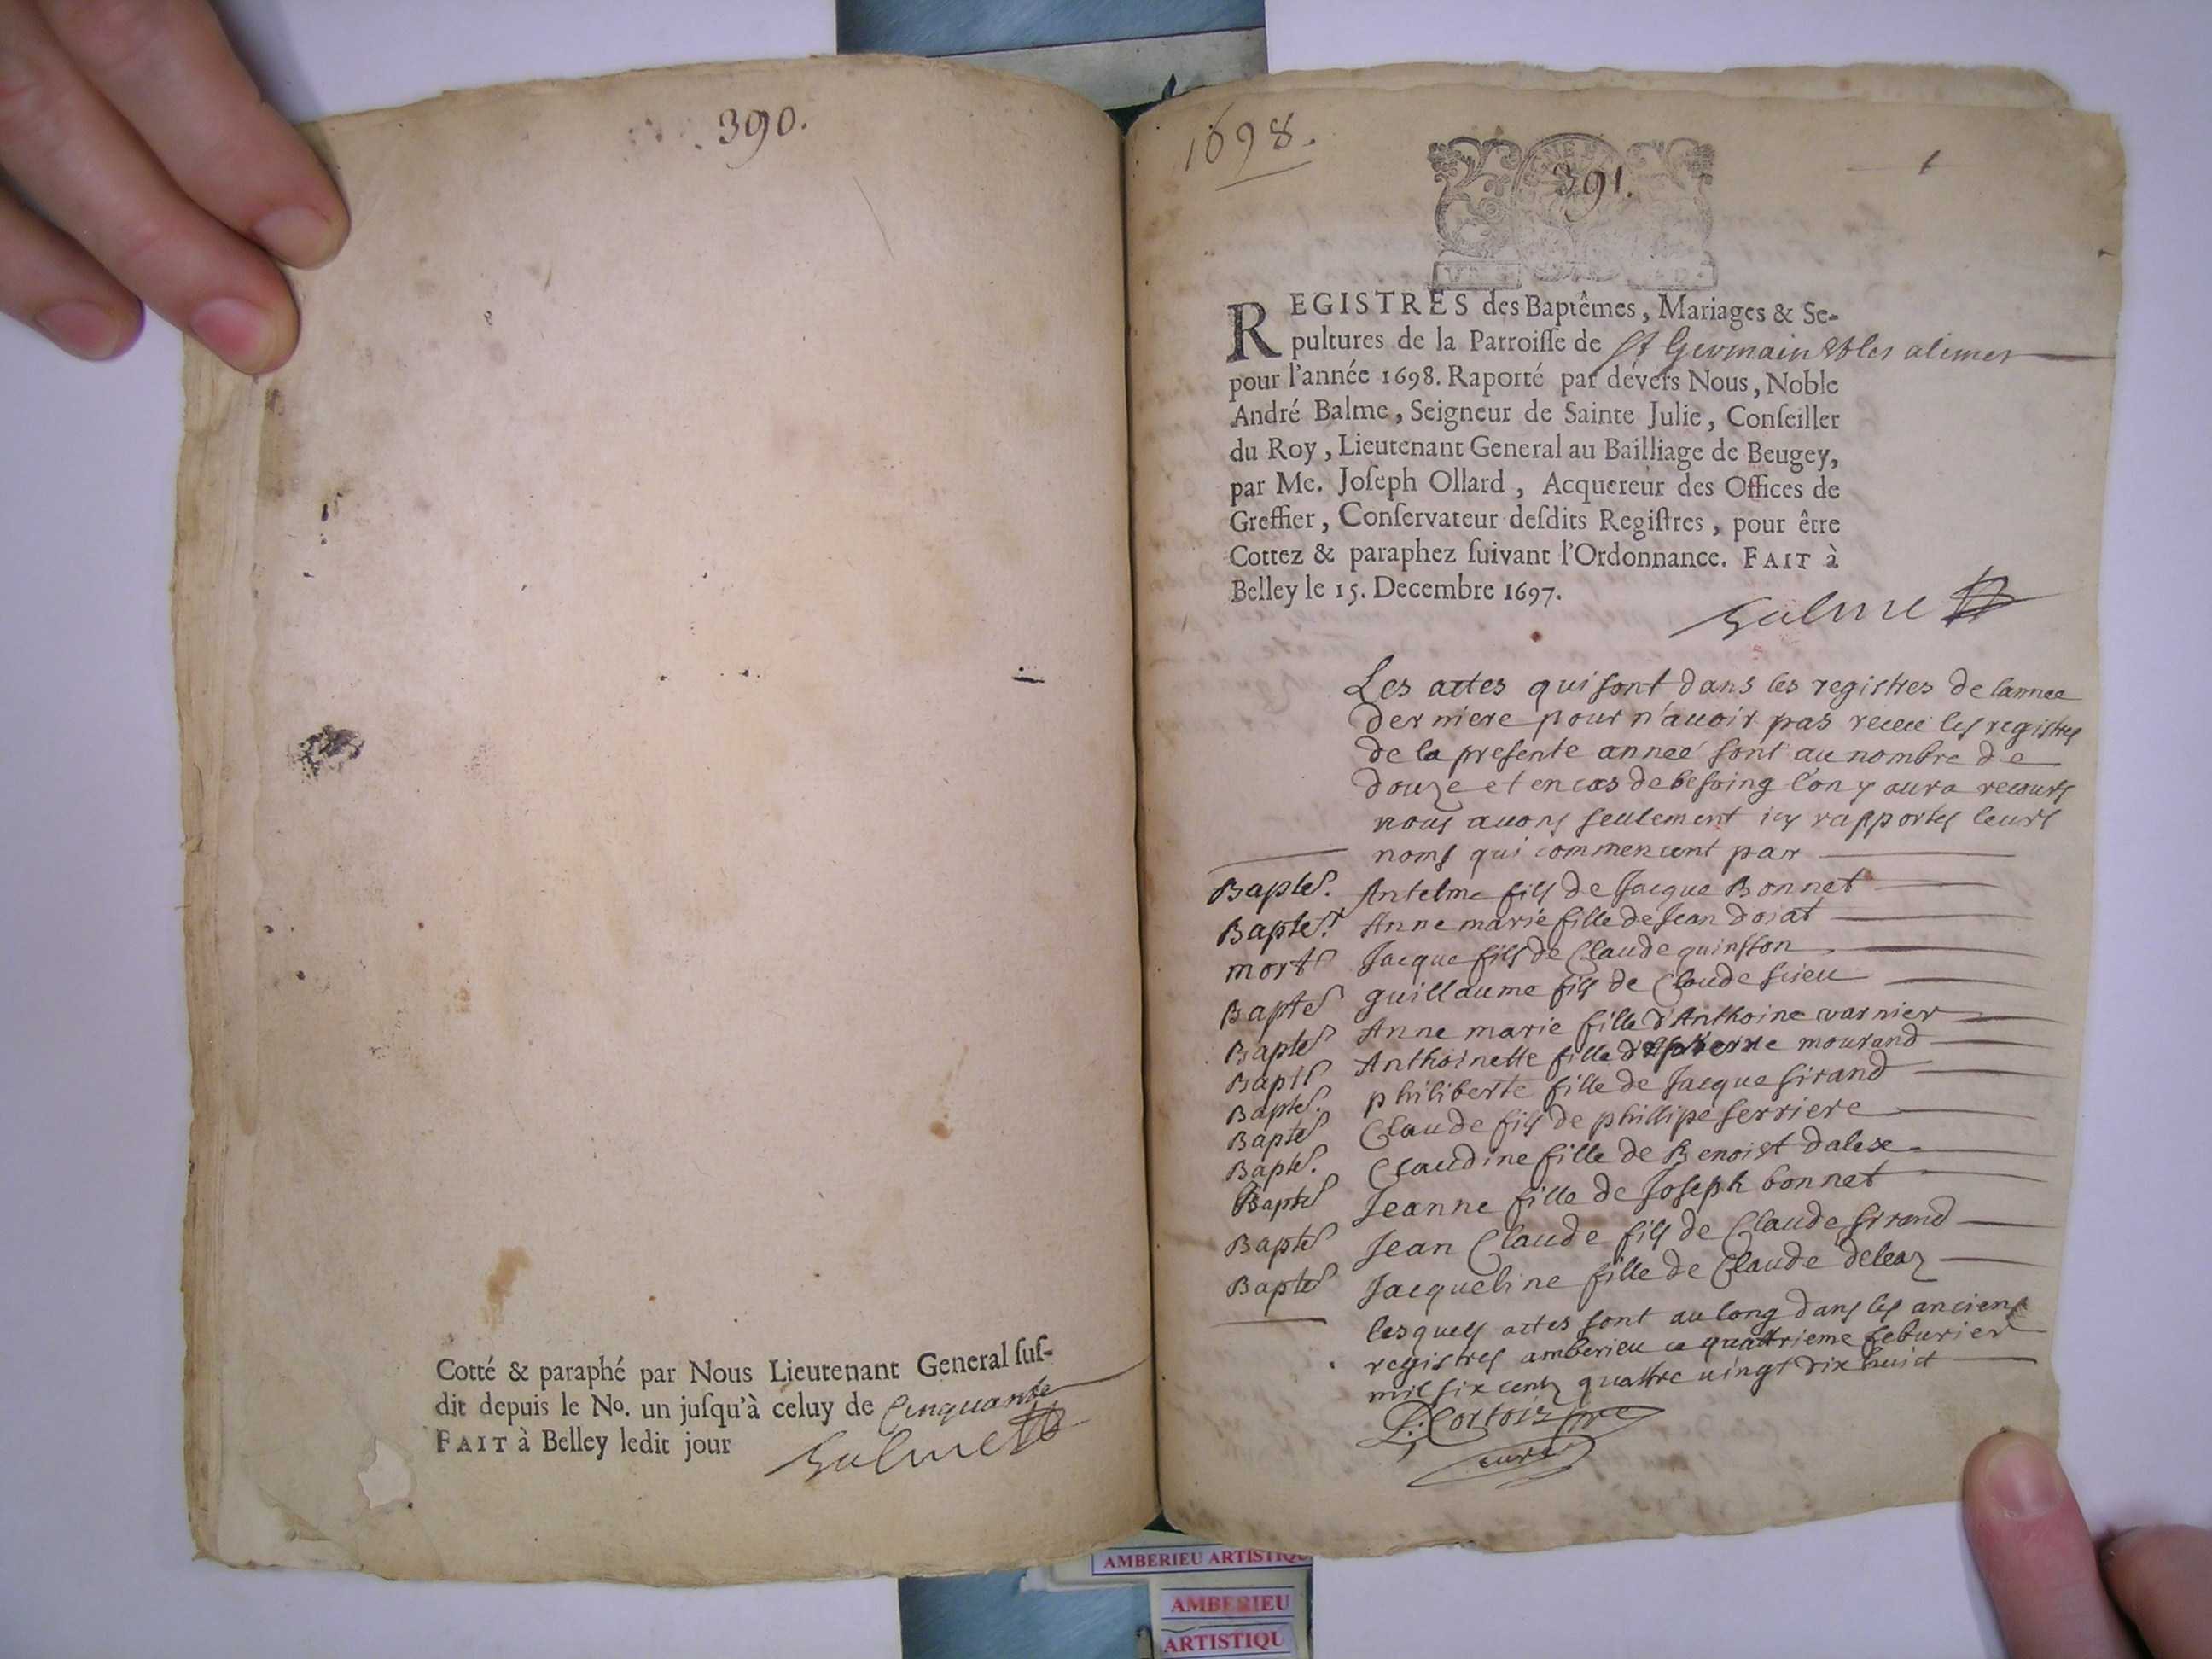 390.
Cotté & paraphé par Nous Lieutenant General ſuſ-
dit depuis le No. un juſqu'à celuy de Cinquante
FAIT à Belley ledit jour
Balme
1698.
391.
1
REGISTRES des Baptêmes, Mariages & Se-
pultures de la Parroiſſe de St Germain &les alimes
pour l'année 1698. Raporté par dévers Nous, Noble
André Balme, Seigneur de Sainte Julie, Conſeiller
du Roy, Lieutenant General au Bailliage de Beugey,
par Me. Joſeph Ollard, Acquereur des Offices de
Greffier, Conſervateur deſdits Regiſtres, pour être
Cottez & paraphez ſuivant l'Ordonnance. FAIT à
Belley le 15. Decembre 1697.
Balme
Les actes qui sont dans les registres de lannee
derniere pour n'auoir pas receu les registres
de la presente anneé sont au nombre de
douze et en cas de besoing l'on y aura recours
nous auons seulement icy rapportes leurs
noms qui commencent par
Baptes. Antelme fils de Jacque Bonnet
Baptes. Anne marie fille de Jean doiat
mort Jacque fils de Claude quinsson
Baptes guillaume fils de Claude sieu
Baptes Anne marie fille d'Anthoine varnier
Bapts Anthoinette fille pierre mourand
Baptes. philiberte fille de Jacque sirand
Baptes Claude fils de phillipe ferriere
Baptes. Claudine fille de Benoist dalex
Baptes Jeanne fille de Joseph bonnet
Baptes Jean Claude fils de Claude sirand
Baptes Jacqueline fille de Claude deleaz
lesquels actes sont au long dans les anciens
registres amberieu ce quattrieme feburier
mil six cents quattre uingt dix huict
L. Cortois pre
curé
AMBERIEU ARTISTIQU
AMBERIEU
ARTISTIQU